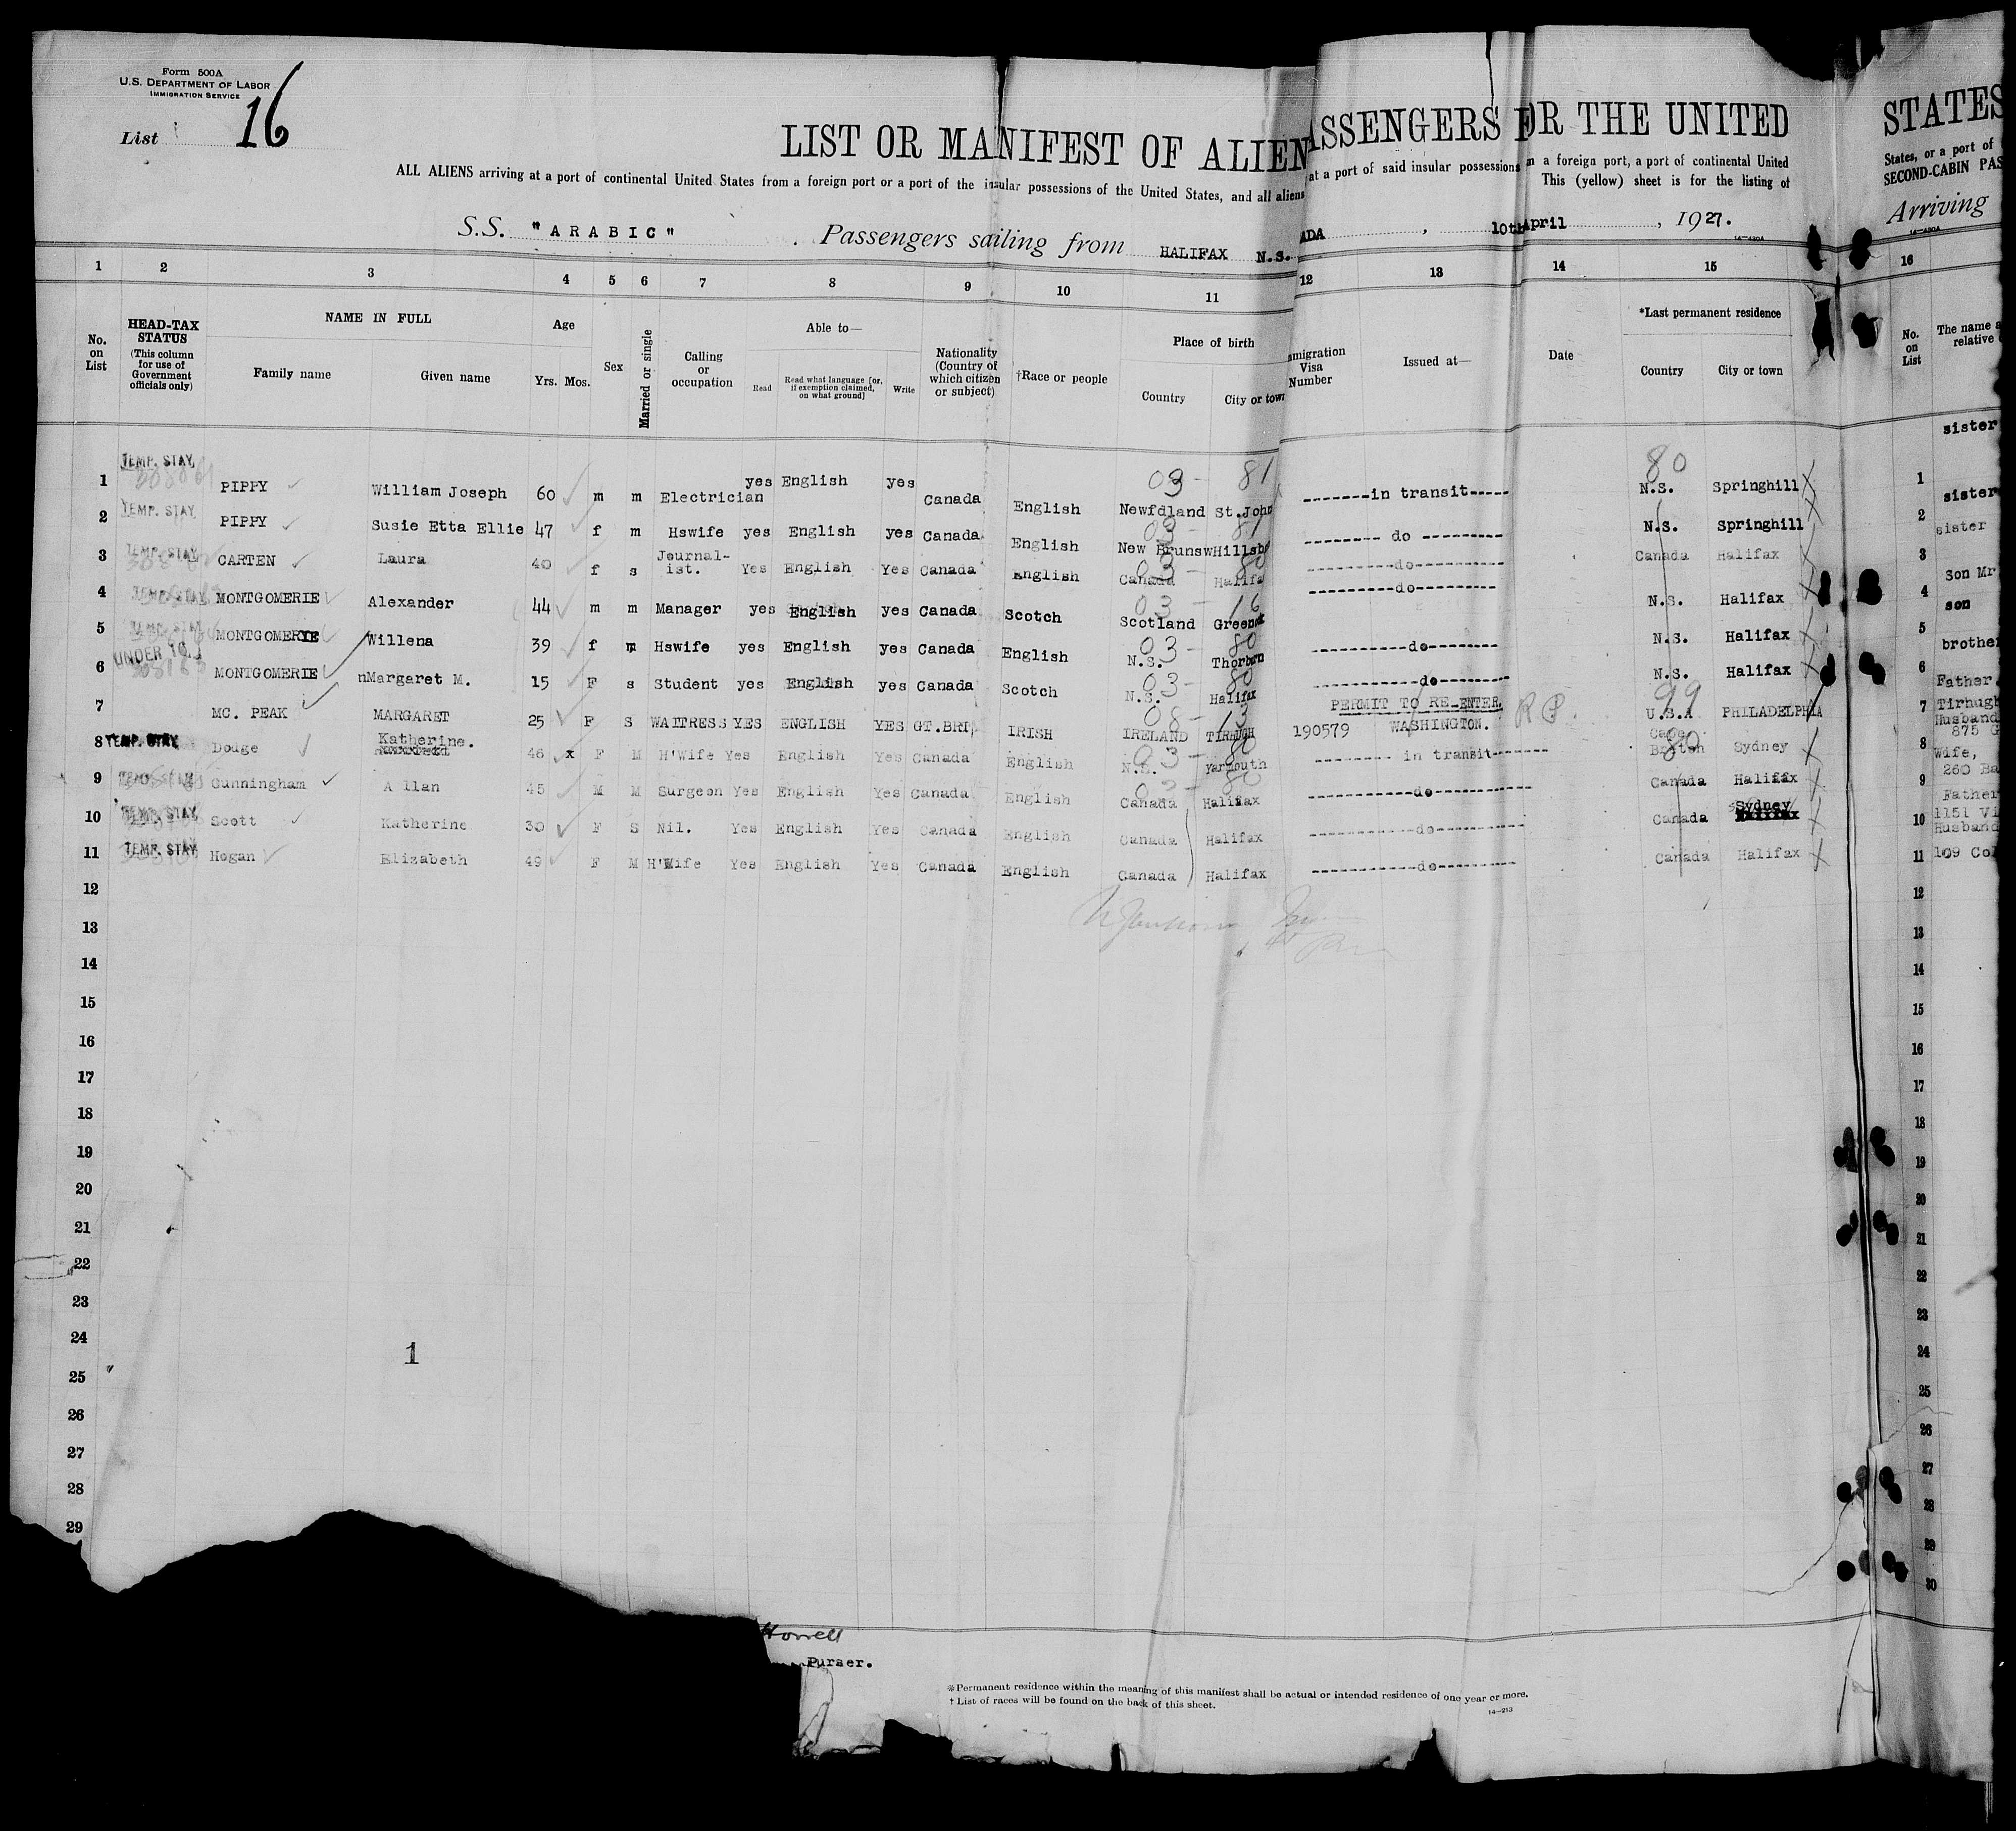 Form 500A
U.S. DEPARTMENT OF LABOR
IMMIGRATION SERVICE
List 16
LIST OR MANIFEST OF ALIEN ASSENGERS FOR THE UNITED STATES
ALL ALIENS arriving at a port of continental United States from a foreign port or a port of the insular possessions of the United States, and all aliens at a port of said insular possessions a foreign port, a port of continental United States, or a port of
This (yellow) sheet is for the listing of SECOND-CABIN PAS
S.S. "ARABIC" Passengers sailing from HALIFAX N.S. ADA, 10th April, 1927. Arriving
14-430A 14-430A
1 2 3 4 5 6 7 8 9 10 11 12 13 14 15 16
No. on List HEAD-TAX STATUS (This column for use of Government officials only) NAME IN FULL Family name Given name Age Yrs. Mos. Sex Married or single Calling or occupation Able to— Read Read what language [or, if exemption claimed, on what ground] Write Nationality (Country of which citizen or subject) †Race or people Place of birth Country City or town mmigration Visa Number Issued at— Date *Last permanent residence Country City or town No. on List The name a relative
sister
1 TEMP. STAY PIPPY William Joseph 60 m m Electrician yes English yes Canada English 03- 81 Newfdland St.John -------in transit----- 80 N.S. Springhill 1
sister
2 TEMP. STAY PIPPY Susie Etta Ellie 47 f m Hswife yes English yes Canada English 03- 81 New Brunsw Hillsb -------- do --------- N.S. Springhill 2
sister
3 TEMP. STAY CARTEN Laura 40 f s Journal-ist. Yes English Yes Canada English 03- 80 Canada Halifa ----------do---------- Canada Halifax 3
Son Mr
4 TEMP. STAY MONTGOMERIE Alexander 44 m m Manager yes English yes Canada Scotch 03- 16 Scotland Greenok ----------do---------- N.S. Halifax 4
son
5 MONTGOMERYE Willena 39 f m Hswife yes English yes Canada English 03- 80 N.S. Thorburn ----------do-------- N.S. Halifax 5
brother
6 UNDER 16. MONTGOMERIE Margaret M. 15 F s Student yes English yes Canada Scotch 03- 80 N.S. Halifax ----------do-------- N.S. Halifax 6
Father
7 MC. PEAK MARGARET 25 F S WAITRESS YES ENGLISH YES GT.BRI, IRISH 08- 13 IRELAND TIRHUGH 190579 PERMIT TO RE-ENTER WASHINGTON. R P. 99 U.S.A PHILADELPHIA 7 Tirhugh
Husband
875 G
8 TEMP. STAY Dodge Katherine. 46 x F M H'Wife Yes English Yes Canada English 03- 80 N.S. Yarmouth -------- in transit------- 80 Cape Breton Sydney 8
Wife,
260 Ba
9 Cunningham Allan 45 M M Surgeon Yes English Yes Canada English 03- 80 Canada Halifax -----------do----------- Canada Halifax 9
Father
10 TEMP. STAY Scott Katherine 30 F S Nil. Yes English Yes Canada English Canada Halifax -----------do---------- Canada Sydney 10 1151 Vi
Husband
11 TEMP. STAY Hogan Elizabeth 49 F M H'Wife Yes English Yes Canada English Canada Halifax -----------do--------- Canada Halifax 11 109 Col
12 12
13 13
14 14
15 15
16 16
17 17
18 18
19 19
20 20
21 21
22 22
23 23
24 1 24
25 25
26 26
27 27
28 28
29 29
30
Purser.
*Permanent residence within the meaning of this manifest shall be actual or intended residence of one year or more.
† List of races will be found on the back of this sheet.
14-213